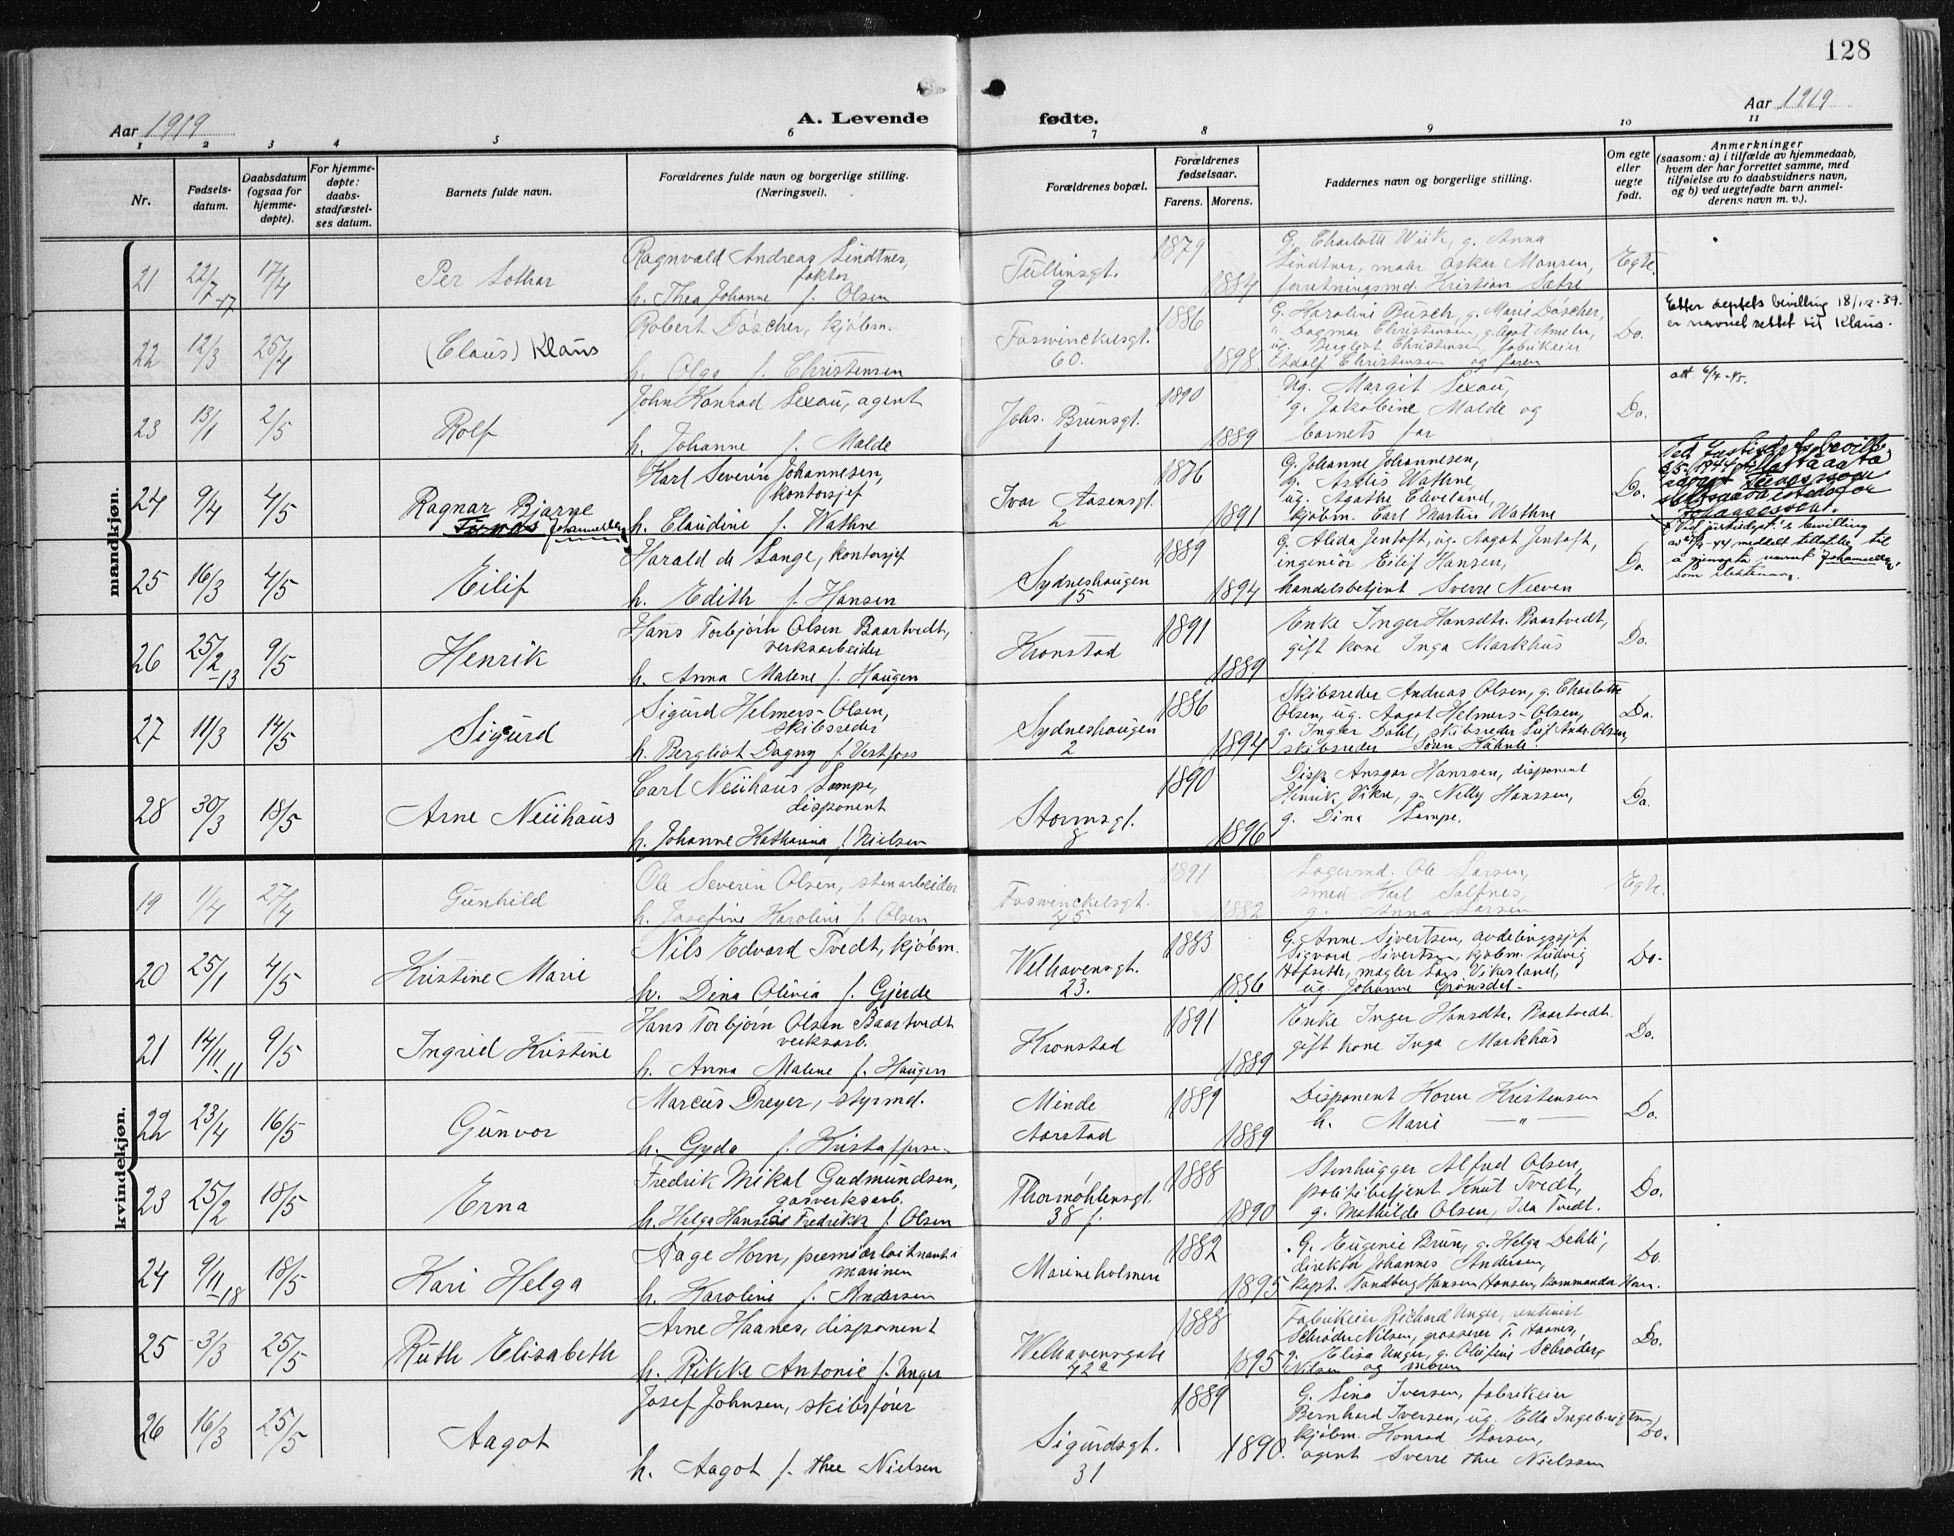 128
Aar 1919
A. Levende
fødte.
Aar 1919
1 2 3 4 5 6 7 8 9 10 11
Nr.
Fødsels-
datum.
Daabsdatum
(ogsaa for
hjemme-
døpte).
For hjemme-
døpte:
daabs-
stadfæstel-
ses datum.
Barnets fulde navn.
Forældrenes fulde navn og borgerlige stilling.
(Næringsvei).
Forældrenes bopæl.
Forældrenes
fødselsaar.
Farens. Morens.
Faddernes navn og borgerlige stilling.
Om egte
eller
uegte
født.
Anmerkninger
(saasom: a) i tilfælde av hjemmedaab,
hvem der har forrettet samme, med
tilføielse av to daabsvidners navn,
og b) ved uegtefødte barn anmel-
derens navn m. v.).
mandkjøn.
21 22/7-17 17/4 Per Lothar
Ragnvald Andreas Lindtner,
faktor
h. Thea Johanne f. Olsen
Tullinsgt.
9
1879
1884
G. Charlotte Wiik, g. Anna
Lindtner, mabr. Oskar Monsen,
forretningsmd. Kristian Sætre
Egte.
22 12/3 25/4 (Claus) Klaus
Robert Döscher, kjøbm.
h. Olga f. Christensen
Fosswinckelsgt.
60.
1886
1898
G. Karoline Busch, g. Marie Döscher,
" Dagmar Christensen, g. Agot Ameln,
ug. Bergliot Christensen, fabrikeier
Adolf Christensen og faren
Do.
Etter deptets bevilling 18/12-39.
er navnet rettet til Klaus.
23 13/1 2/5 Rolf
John Konrad Sexau, agent
h. Johanne f. Malde
Johs. Brunsgt.
1
1890
1889
Ug. Margit Sexau,
g. Jakobine Malde og
barnets far
Do.
att. 6/4-45.
24 9/4 4/5 Ragnar Bjarne
Johannesen
Karl Severin Johannesen,
kontorsjef
h. Claudine f. Wathne
Ivar Aasensgt.
2
1876
1891
G. Johanne Johannesen,
g. Asdis Wathne,
ug. Agathe Cleveland,
kjøbm. Carl Martin Wathne
Do.
25 16/3 4/5 Eilif
Harald de Lange, kontorsjef
h. Edith f. Hansen
Sydneshaugen
15
1889
1894
G. Alida Jentoft, ug. Aagot Jentoft,
ingeniör Eilif Hansen,
handelsbetjent Sverre Neeven
Do.
26 25/2-13 9/5 Henrik
Hans Torbjörn Olsen Baartvedt,
verksarbeider
h. Anna Malene f. Haugen
Kronstad
1891
1889
Enke Inger Hansdtr. Baartvedt,
gift kone Inga Markhus
Do.
27 11/3 14/5 Sigurd
Sigurd Helmers-Olsen,
skibsreder
h. Bergliot Dagny f. Vestfoss
Sydneshaugen
2
1886
1894
Skibsreder Andreas Olsen, g. Charlotte
Olsen, ug. Aagot Helmers-Olsen,
g. Inger Dahl, skibsreder Leif Andr. Olsen,
skibsreder
Do.
28 30/3 18/5 Arne Neuhaus
Carl Neuhaus Lampe,
disponent
h. Johanne Katharina f. Nielsen
Stormsgt.
8
1890
1896
Disp. Ansgar Hanssen, disponent
Henrik Vike, g. Nelly Hanssen,
g. Dina Lampe.
Do.
kvindekjøn.
19 1/4 27/4 Gunhild
Ole Severin Olsen, stenarbeider
h. Josefine Karoline f. Olsen
Fosswinckelsgt.
45
1891
1882
Lagermd. Ole Larsen,
smed Karl Salfnes,
g. Anna Larsen
Egte.
20 25/1 4/5 Kristine Marie
Nils Edvard Tvedt, kjøbm.
h. Dina Olivia f. Gjerde
Welhavensgt.
23.
1883
1886
G. Anne Sivertsen, avdelingssjef
Sigvard Sivertsen, kjøbm. Ludvig
Hofseth, mægler Lars Vikesland,
ug Johanne Grönsdel.
Do.
21 14/11-11 9/5 Ingrid Kristine
Hans Torbjörn Olsen Baartvedt
verksarb.
h. Anna Malene f. Haugen
Kronstad
1891
1889
Enke Inger Hansdtr. Baartvedt
gift kone Inga Markhus
Do.
22 23/4 16/5 Gunvor
Marcus Dreyer, styrmd.
h. Gyda f. Kristoffersen
Minde
Aarstad
1889
1889
Disponent Koren Kristensen
h. Marie — " —
Do.
23 25/2 18/5 Erna
Fredrik Mikal Gudmundsen,
gasverksarb.
h. Helga Hansine Fredrikke f. Olsen
Thormøhlensgt.
38 f.
1888
1890
Stenhugger Alfred Olsen,
politibetjent Knut Tvedt,
g. Mathilde Olsen, Ida Tvedt.
Do.
24 9/11-18 18/5 Kari Helga
Aage Horn, premiærløitnant i
marinen
h. Karoline f. Andersen
Marineholmen
1882
1895
G. Eugenie Brun, g. Helga Dehli,
direktør Johannes Andersen,
kapt. Sandberg Hansen Hansen, kommandør Horn.
Do.
25 3/3 25/5 Ruth Elisabeth
Arne Haanes, disponent
h. Rikka Antonie f. Unger
Welhavensgate
42a
1888
1895
Fabrikeier Richard Unger, rentenist
Schrøder Nilsen, grosserer T. Haanes,
g. Elisa Unger, g. Olufine Schrøder,
Nilsen og moren
Do.
26 16/3 25/5 Aagot
Josef Johnsen, skibsfører
h. Aagot f. thee Nielsen
Sigurdsgt.
31
1889
1890
G. Lina Iversen, fabrikeier
Bernhard Iversen, ug. Ella Ingebrigtsen,
kjøbm. Konrad Larsen,
agent Sverre thee Nielssen
Do.